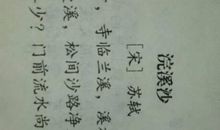 浣溪沙
[宋] 苏轼
，寺临兰溪，溪
溪，松间沙路净
少？门前流水尚